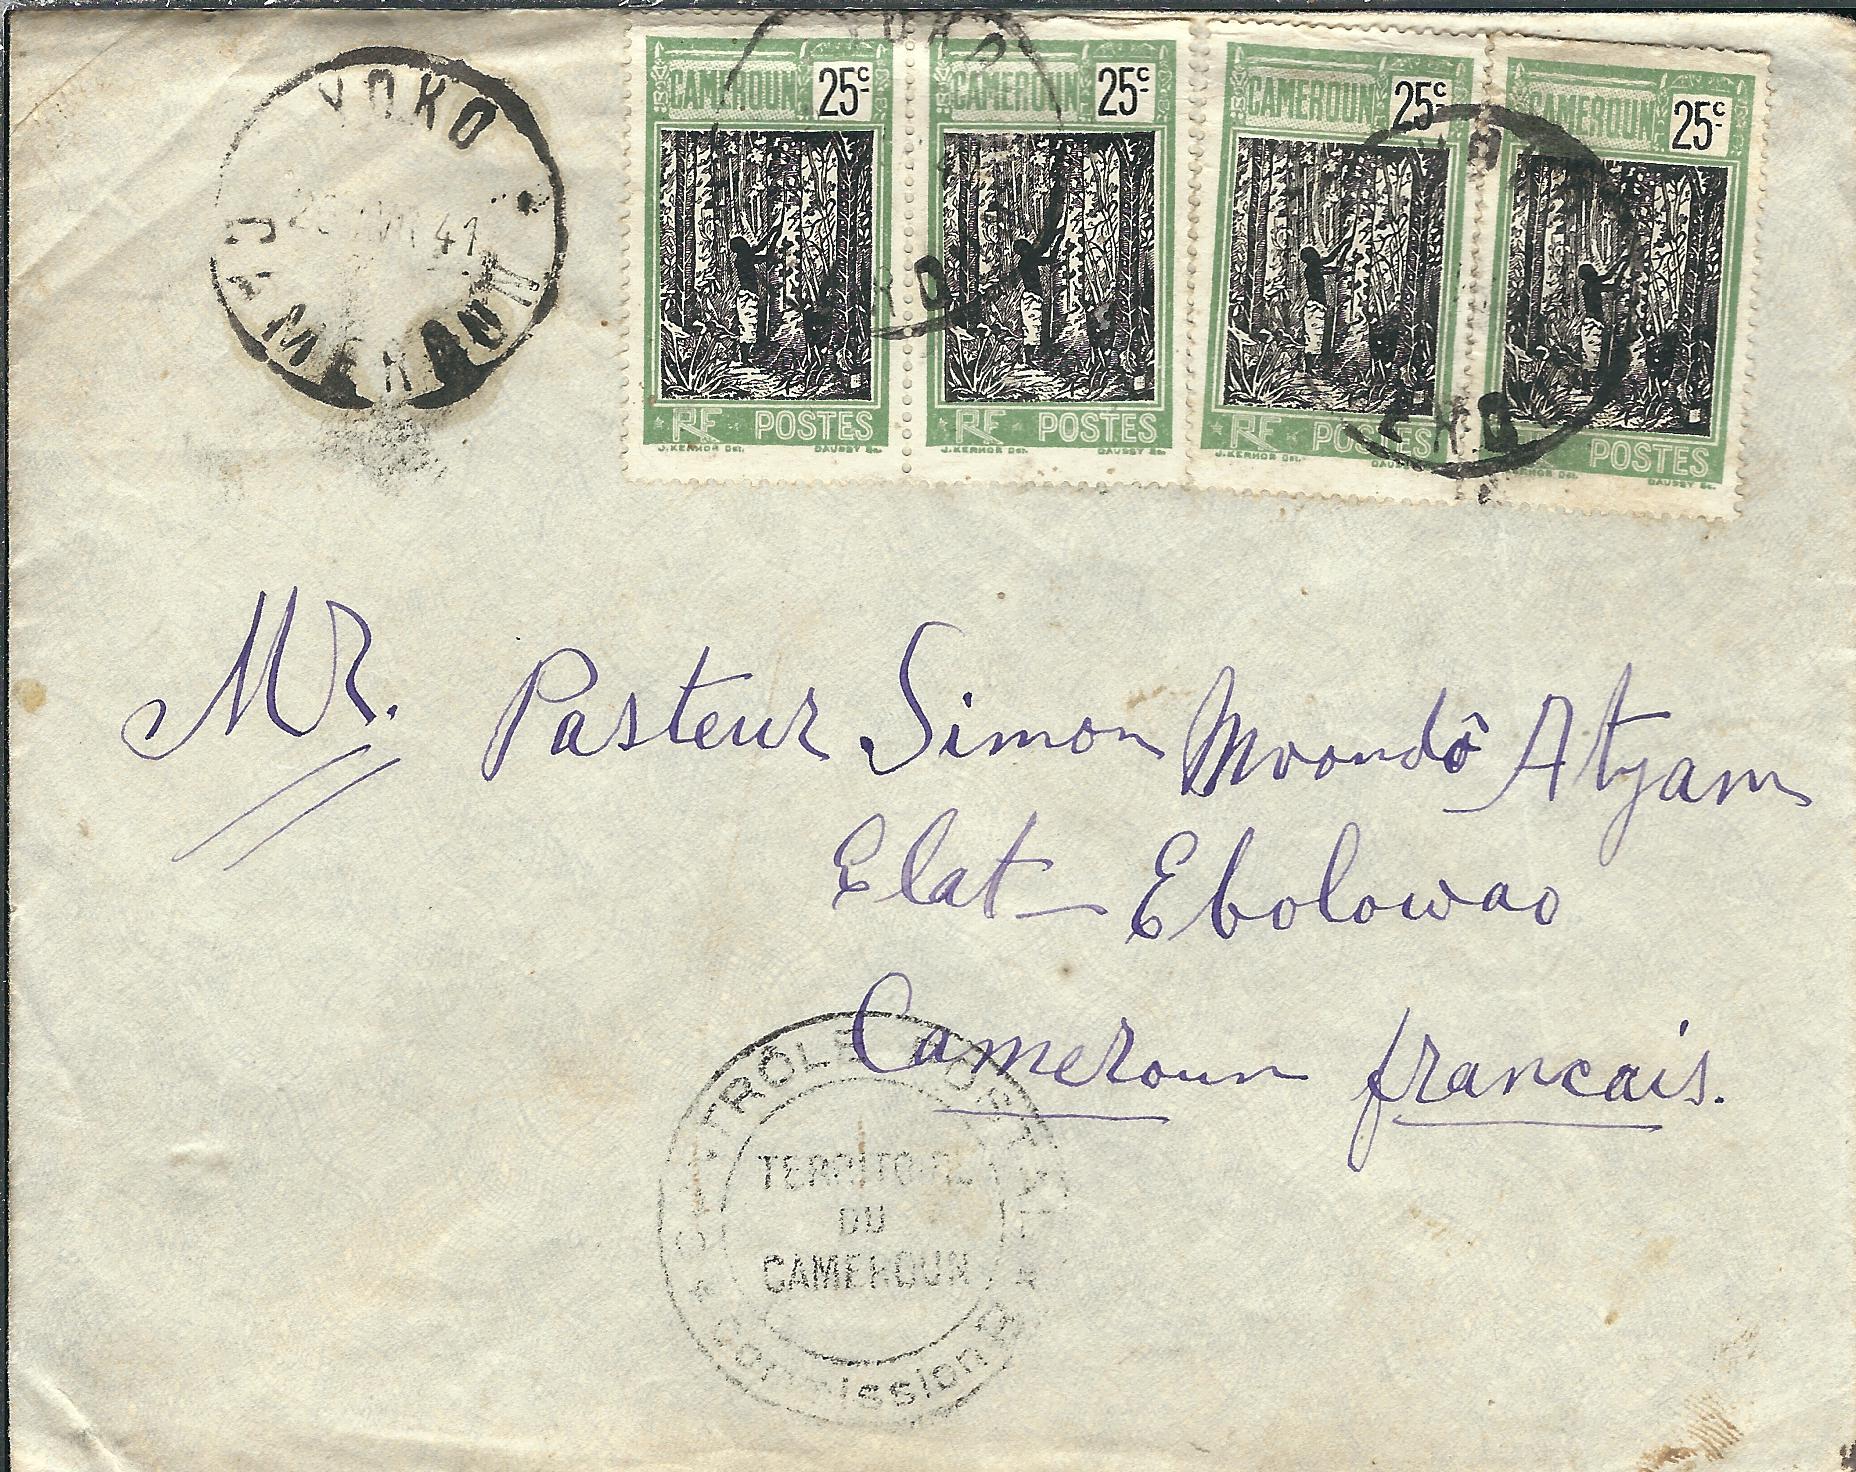 YOKO
41
CAMEROUN
CAMEROUN 25c
RF POSTES
J.KERHOR DEL. DAUSSY Sc.
CAMEROUN 25c
RF POSTES
J.KERHOR DEL. DAUSSY Sc.
CAMEROUN 25c
RF POSTES
J.KERHOR DEL.
CAMEROUN 25c
POSTES
DAUSSY Sc.
YOKO
Mr. Pasteur Simon Mvondô Atyam
Elat – Ebolowao
Cameroun francais.
TERRITOIRE
DU
CAMEROUN
Commission B